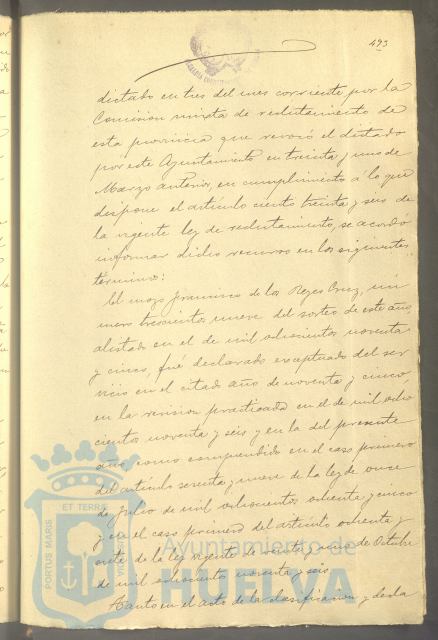 493
dictado en tres del mes corriente por la
Comisión mixta de reclutamiento de
esta provincia que revocó el dictado
por este Ayuntamiento en treinta y uno de
Marzo anterior, en cumplimiento a lo que
dispone el artículo ciento treinta y seis de
la vigente ley de reclutamiento, se acordó
informar dicho recurso en los siguientes
términos:
El mozo francisco de los Reyes Cruz, nú
mero trescientos nueve del sorteo de este año,
alistado en el de mil ochocientos noventa
y cinco, fué declarado exceptuado del ser
vicio en el citado año de noventa y cinco
en la revisión practicada en el de mil ocho
cientos noventa y seis y en la del presente
año, como comprendido en el caso primero
del artículo sesenta y nueve de la ley de once
de Julio de mil ochocientos ochenta y cinco
y en el caso primero del artículo ochenta y
siete de la ley vigente de veinte y uno de Octubre
de mil ochocientos noventa y seis
Tanto en el acto de la clasificación y decla
PORTUS MARIS ET TERRA
Ayuntamiento de
HUELVA